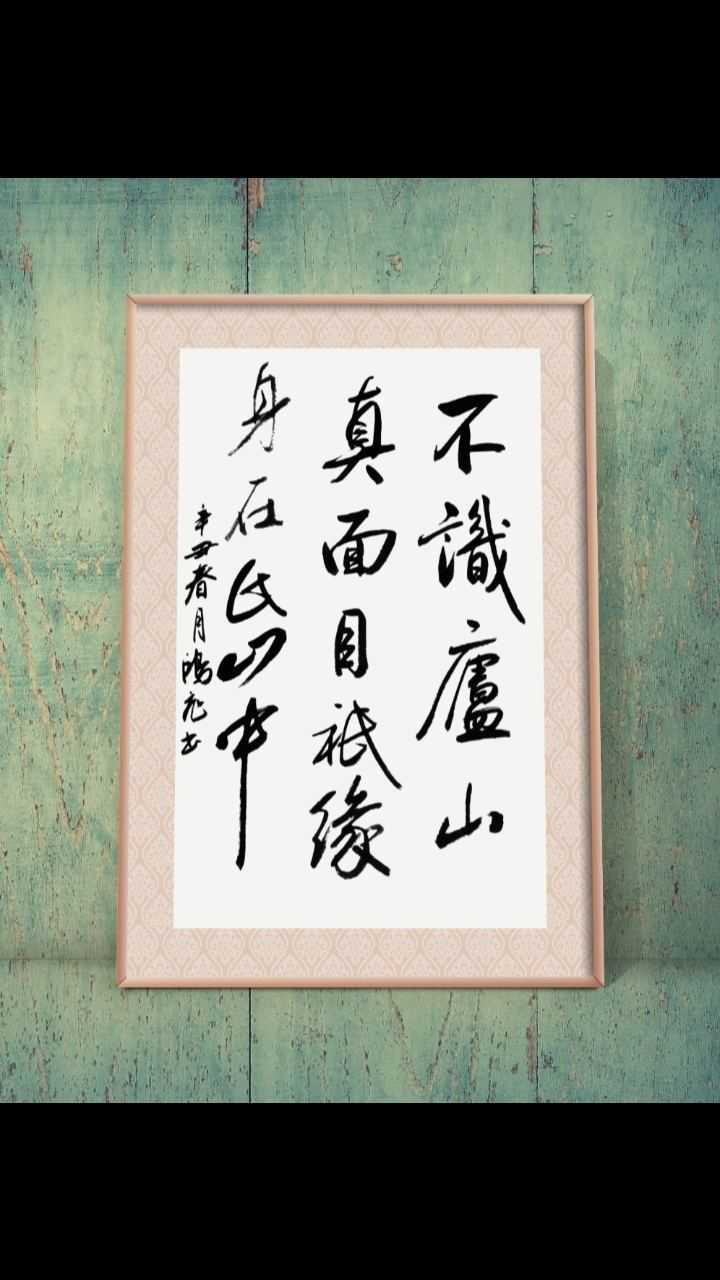 不識廬山
真面目祇緣
身在此山中
辛丑春月鴻彪書